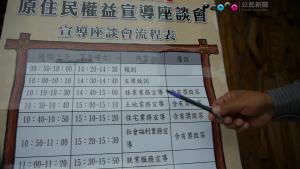 公民新聞
原住民權益宣導座談會
宣導座談會流程表
備註
09:50-10:00 14:20-14:30 報到
10:00-10:10 14:30-14:40 主席致詞
10:10-10:30 14:40-15:00 林業業務宣導 含有獎徵答
10:30-10:40 15:00-15:10 土地業務宣導 含有獎徵答
10:40-10:50 15:10-15:20 住宅業務宣導 含有獎徵答
10:50-11:00 15:20-15:30 社會福利業務宣導 含有獎徵答
11:00-11:20 15:30-15:50 就業服務宣導